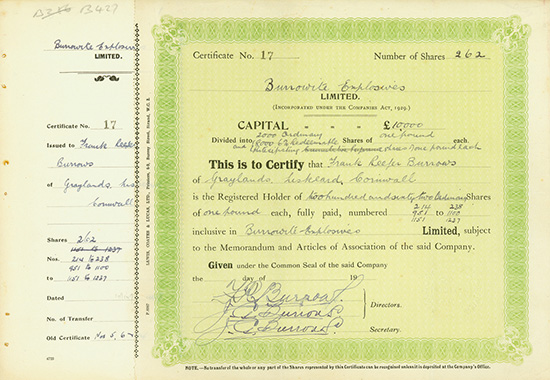 B427
Burrowite Explosives
LIMITED.
Certificate No. 17
Issued to Frank Reeper
Burrows
of Graylands, Liskeard
Cornwall
Shares 262
951 to 1100
1151 to 1237
Nos. 214 to 238
951 to 1100
to 1151 to 1237
Dated
No. of Transfer
Old Certificate Nos 5, 6
Certificate No. 17 Number of Shares 262
Burrowite Explosives
LIMITED.
(INCORPORATED UNDER THE COMPANIES ACT, 1929.)
CAPITAL - - £10,000
2000 Ordinary one pound
Divided into 8000 6% Redeemable Shares of each.
and participating shares of one pound each
This is to Certify that Frank Reeper Burrows
of Graylands, Liskeard, Cornwall
is the Registered Holder of two hundred and sixty two Ordinary Shares
214 238
of one pound each, fully paid, numbered 951 to 1100
1151 1237
inclusive in Burrowite Explosives Limited, subject
to the Memorandum and Articles of Association of the said Company.
Given under the Common Seal of the said Company
the day of 19
Directors.
Secretary.
NOTE.—No transfer of the whole or any part of the Shares represented by this Certificate can be recognised unless it is deposited at the Company's Office.